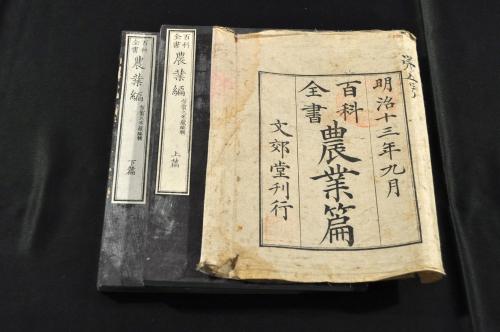 明治十三年九月
百科
全書
農業篇
文郊堂刊行
百科
全書
農業編
上篇
百科
全書
農業編
下篇